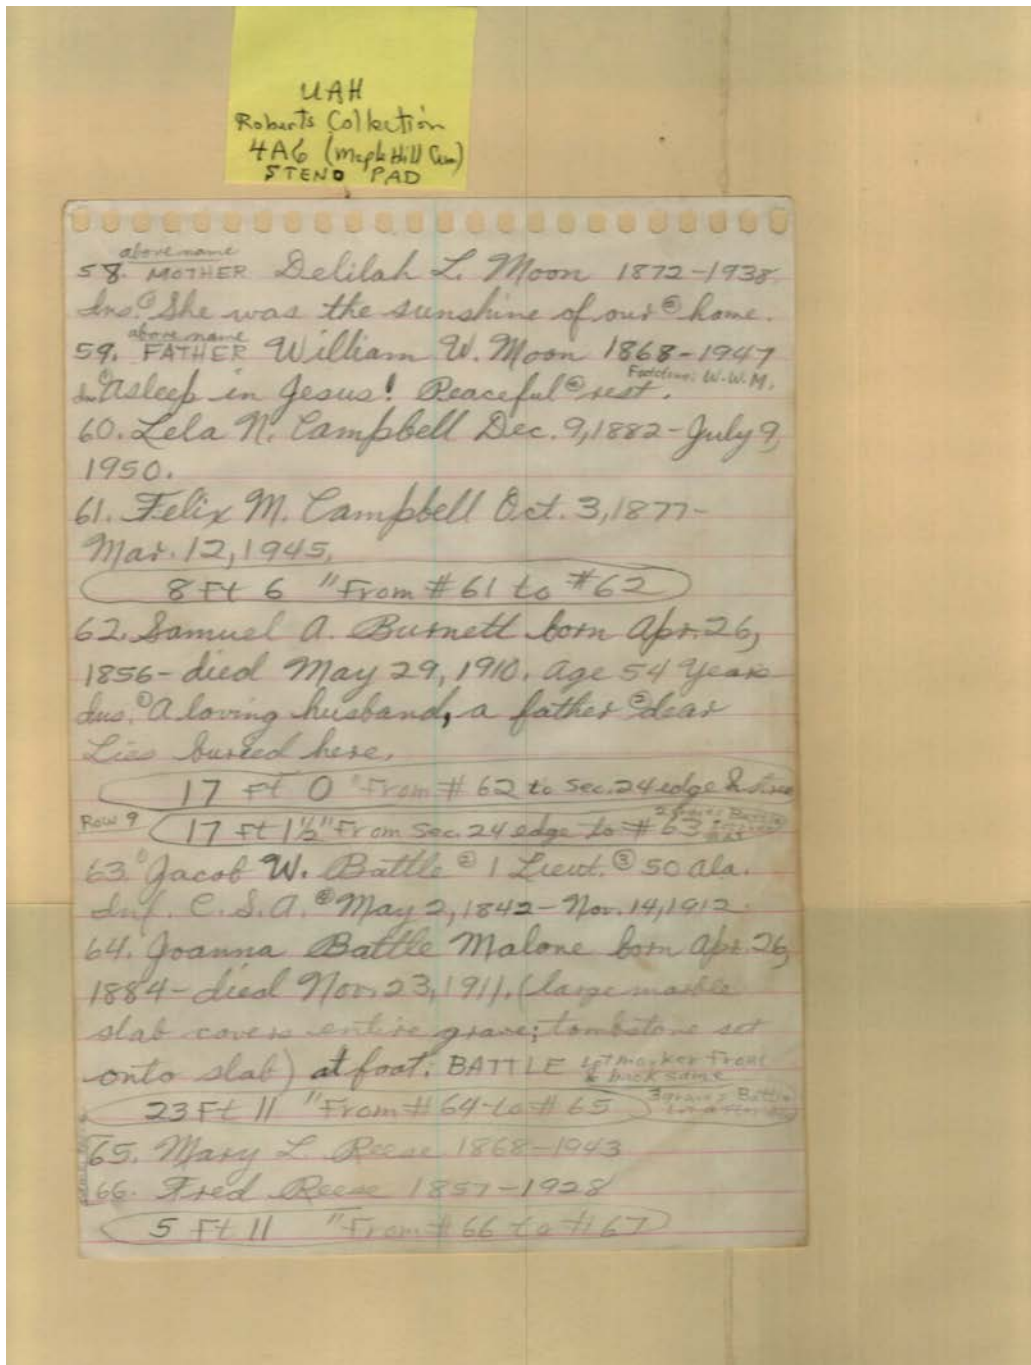 UAH
Roberts Collection
4A6 (Maple Hill Cem)
STENO PAD
above name
58. MOTHER Delilah L. Moon 1872-1938
Ins. ① She was the sunshine of our ② home.
above name
59. FATHER William W. Moon 1868-1947
Footstone: W.W.M.
In ① Asleep in Jesus! Peaceful ② rest.
60. Lela N. Campbell Dec. 9, 1882 - July 9,
1950.
61. Felix M. Campbell Oct. 3, 1877-
Mar. 12, 1945.
8 Ft 6 " From # 61 to # 62
62. Samuel A. Burnett born Apr. 26,
1856- died May 29, 1910. Age 54 Years
Ins. ① A loving husband, a father ② dear
Lies buried here.
17 Ft 0 " From # 62 to Sec. 24 edge & tree
Row 9
17 Ft 1½" From Sec. 24 edge to # 63
63. ① Jacob W. Battle ② 1 Lieut. ③ 50 Ala.
Inf. C.S.A. ④ May 2, 1842 - Nov. 14, 1912
64. Joanna Battle Malone born Apr. 26,
1884- died Nov. 23, 1911. (large marble
slab covers entire grave; tombstone set
onto slab) at foot: BATTLE
lot marker front
& back same
23 Ft 11 " From # 64 to # 65
3 graves Battle
65. Mary L Reese 1868-1943
66. Fred Reese 1857-1928
5 Ft 11 " From # 66 to # 67